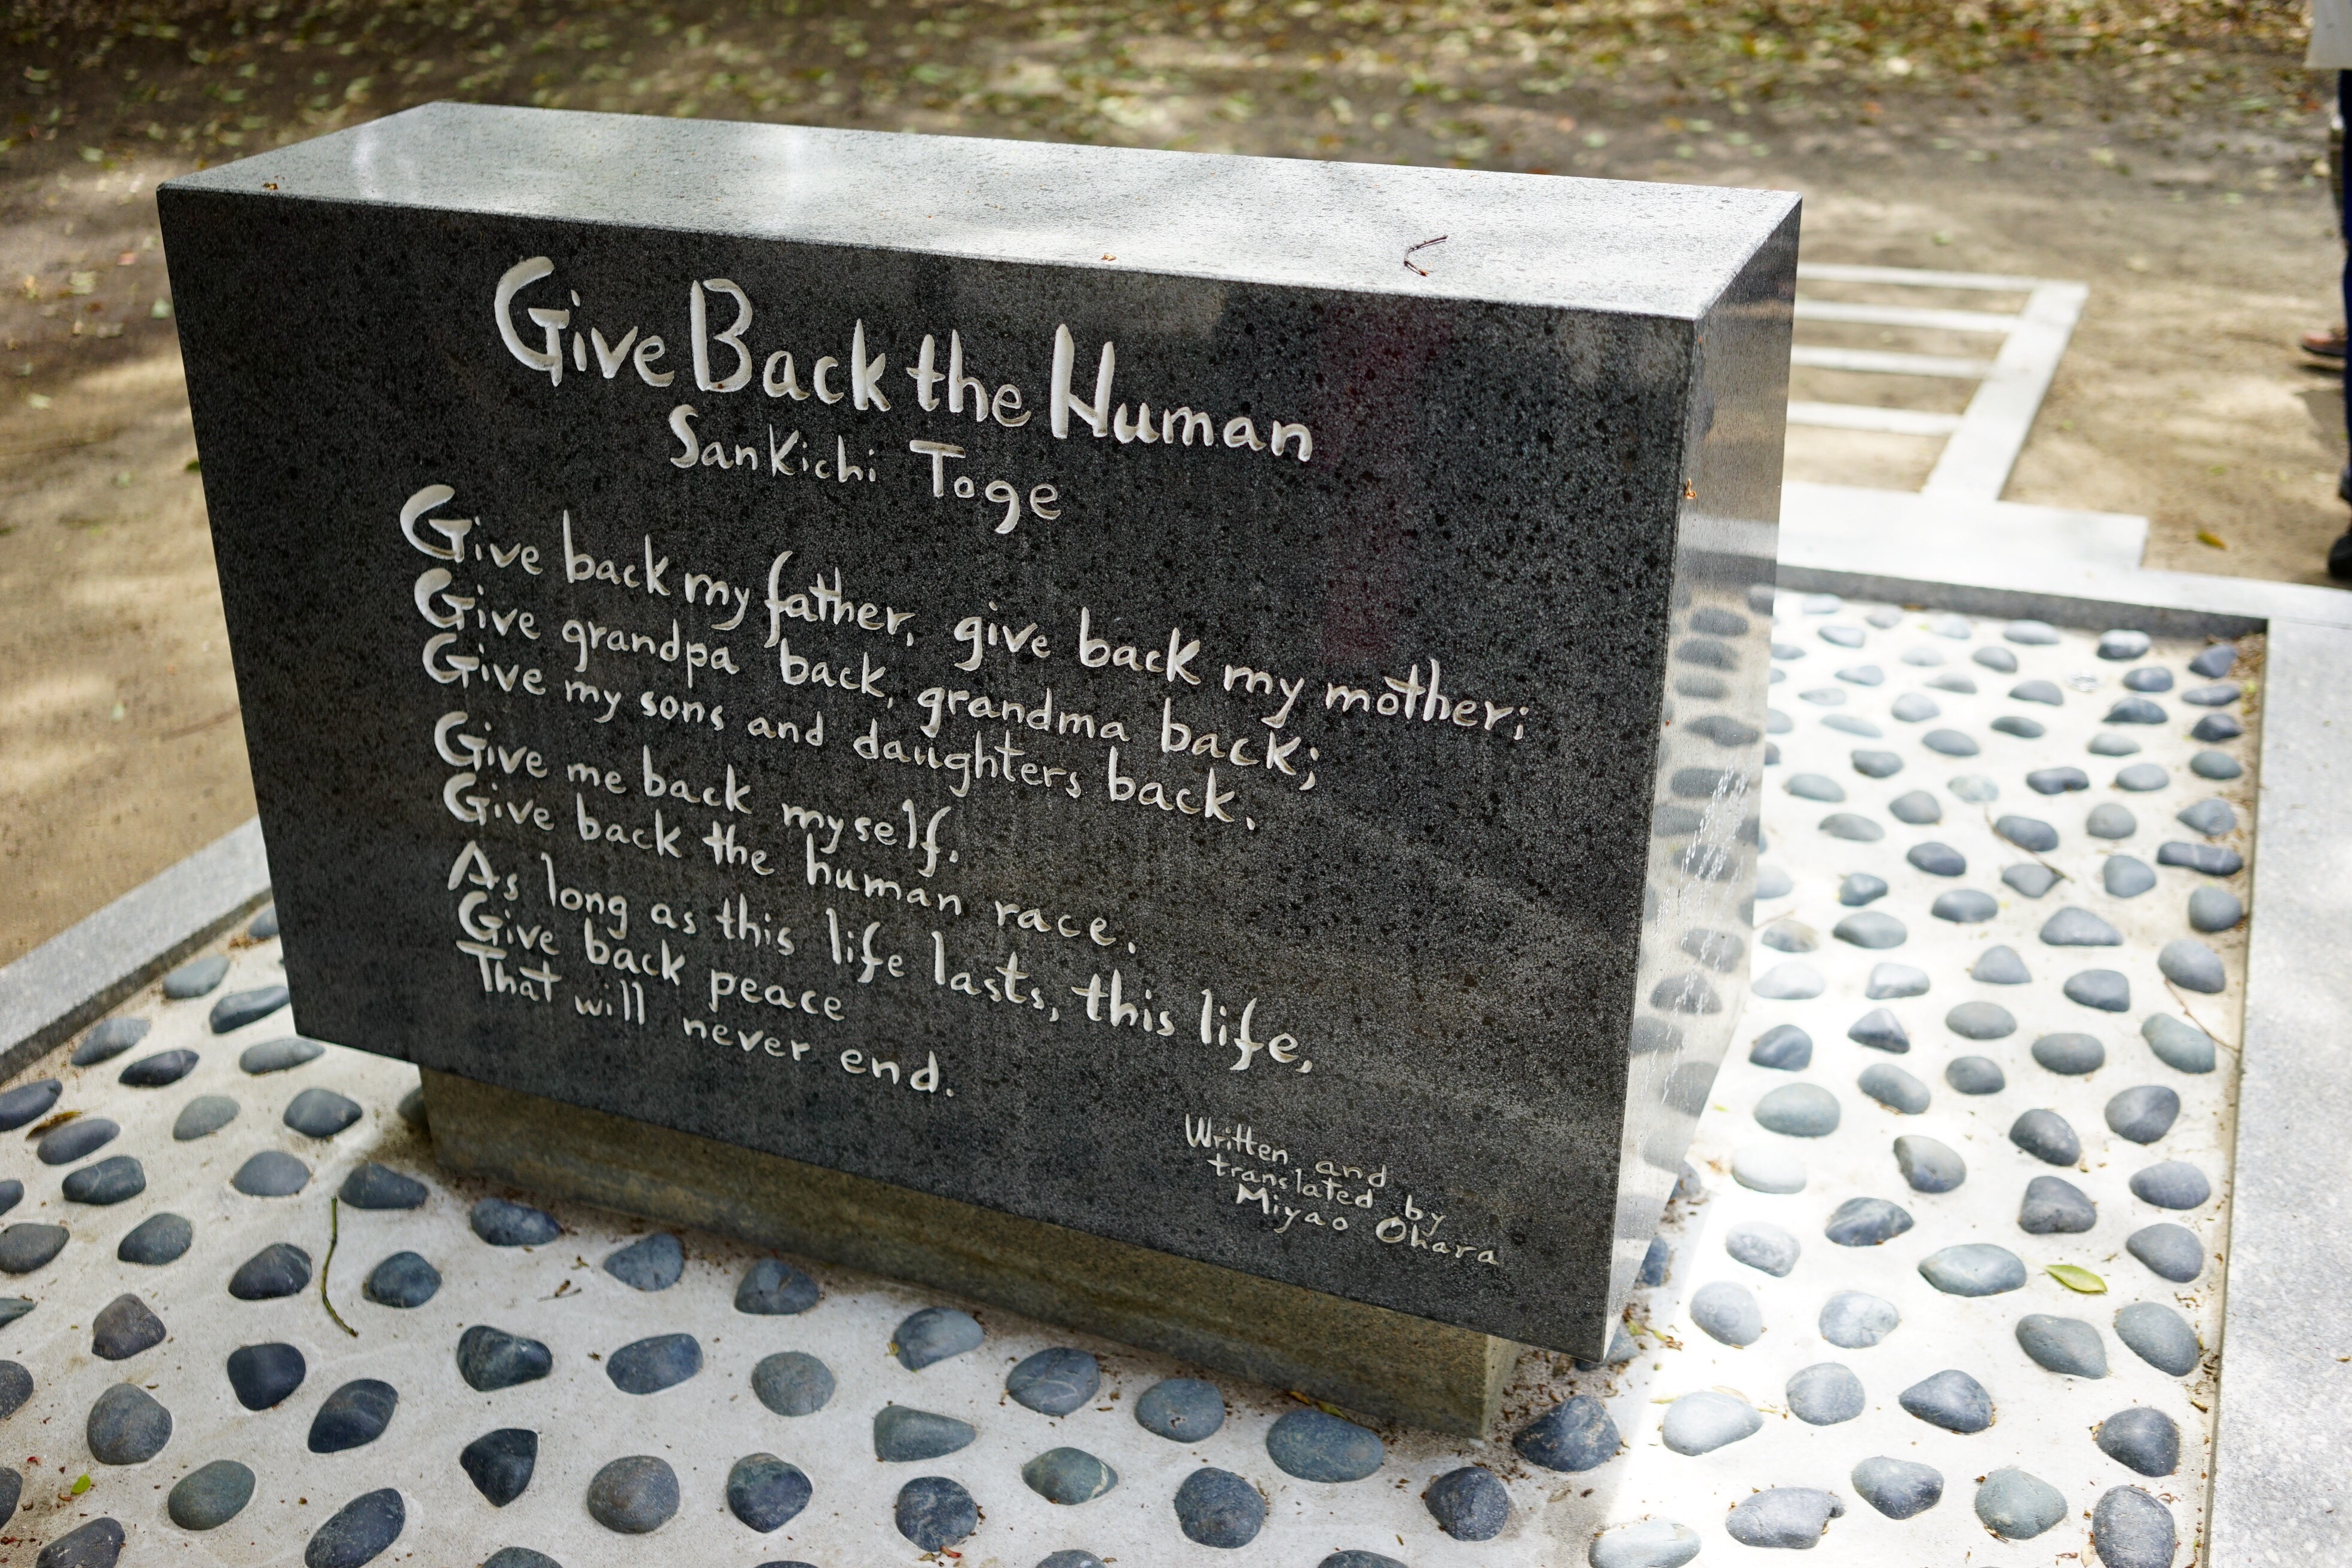 Give Back the Human
Sankichi Toge
Give back my father, give back my mother;
Give grandpa back, grandma back;
Give my sons and daughters back.
Give me back myself.
Give back the human race.
As long as this life lasts, this life,
Give back peace
That will never end.
Written and
translated by
Miyao Ohara